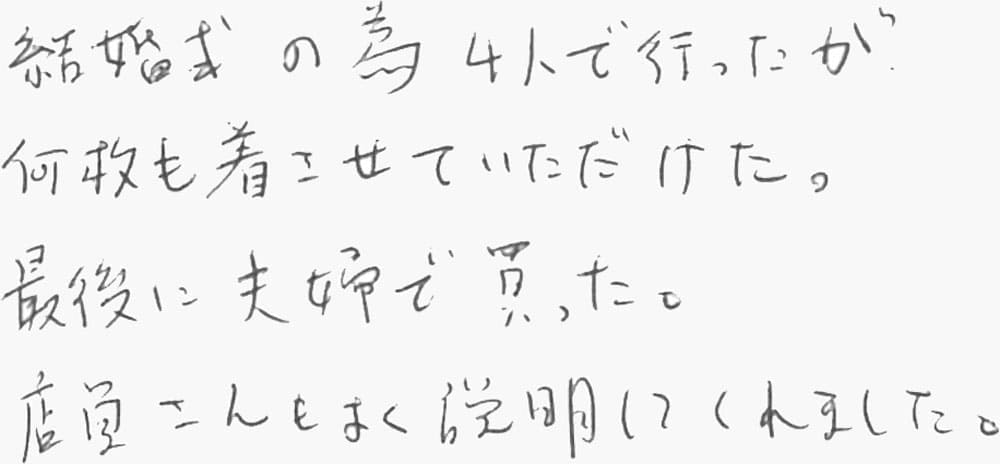 結婚式の為4人で行ったが
何枚も着させていただけた。
最後に夫婦で買った。
店員さんもよく説明してくれました。